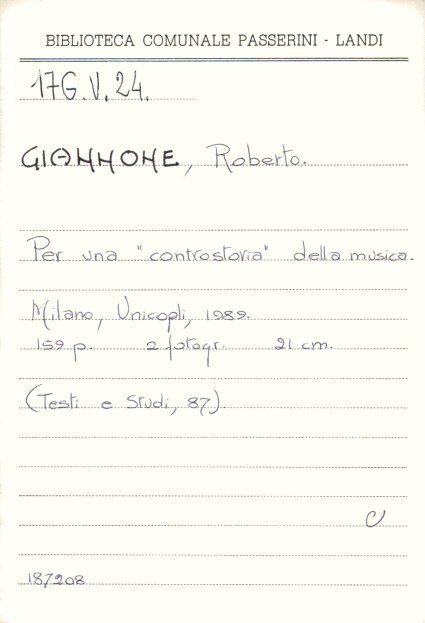 BIBLIOTECA COMUNALE PASSERINI - LANDI
17G.V.24.
GIANNONE, Roberto.
Per una "controstoria" della musica.
Milano, Unicopli, 1989.
159 p. 2 fotogr. 21 cm.
(Testi e Studi, 87).
C
187208